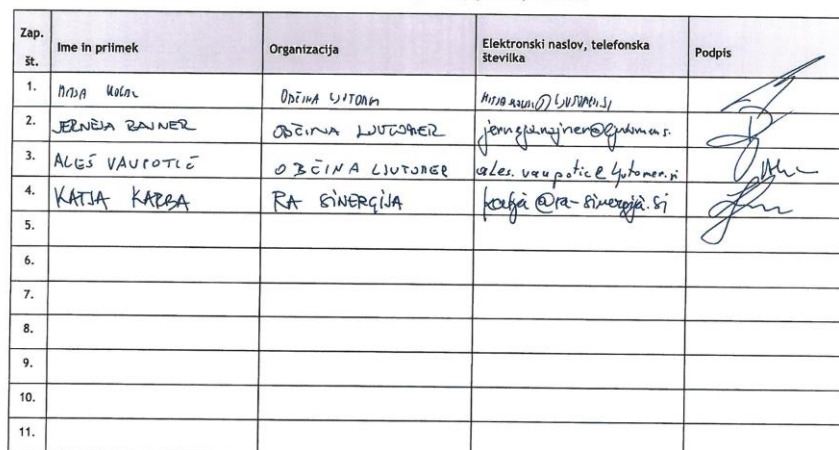 Zap. št. Ime in priimek Organizacija Elektronski naslov, telefonska številka Podpis
1. OBČINA
2. JERNEJA OBČINA LJUTOMER
3. ALEŠ VAUPOTIČ OBČINA LJUTOMER ales.vaupotic@ljutomer.si
4. KATJA KARBA RA SINERGIJA katja@ra-sinergija.si
5.
6.
7.
8.
9.
10.
11.